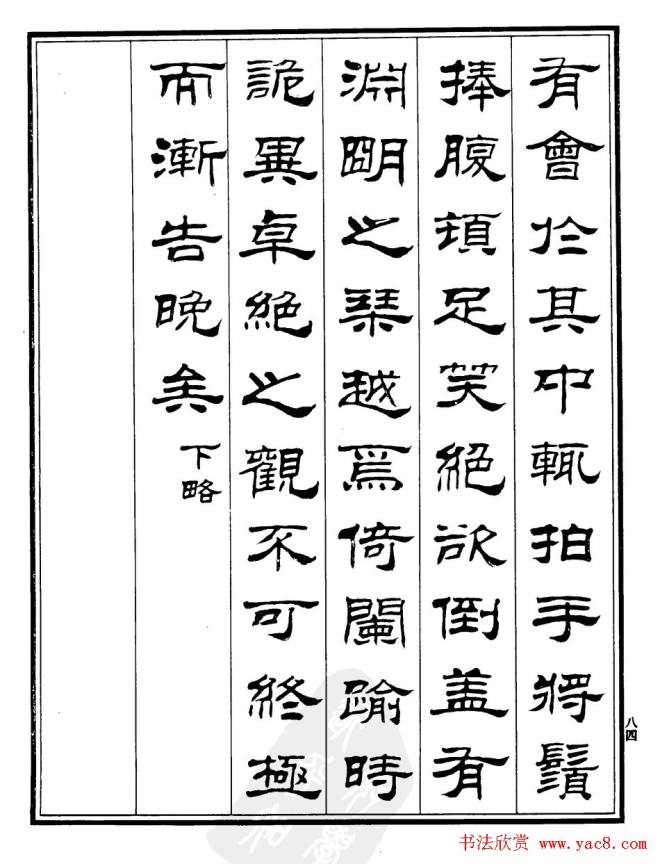 有會於其中輒拍手將鬚
捧腹頓足笑絕欲倒盖有
淵明之琴越焉倚闌踰時
詭異卓絕之觀不可終極
而漸告晚矣 下略
八四
书法欣赏 www.yac8.com